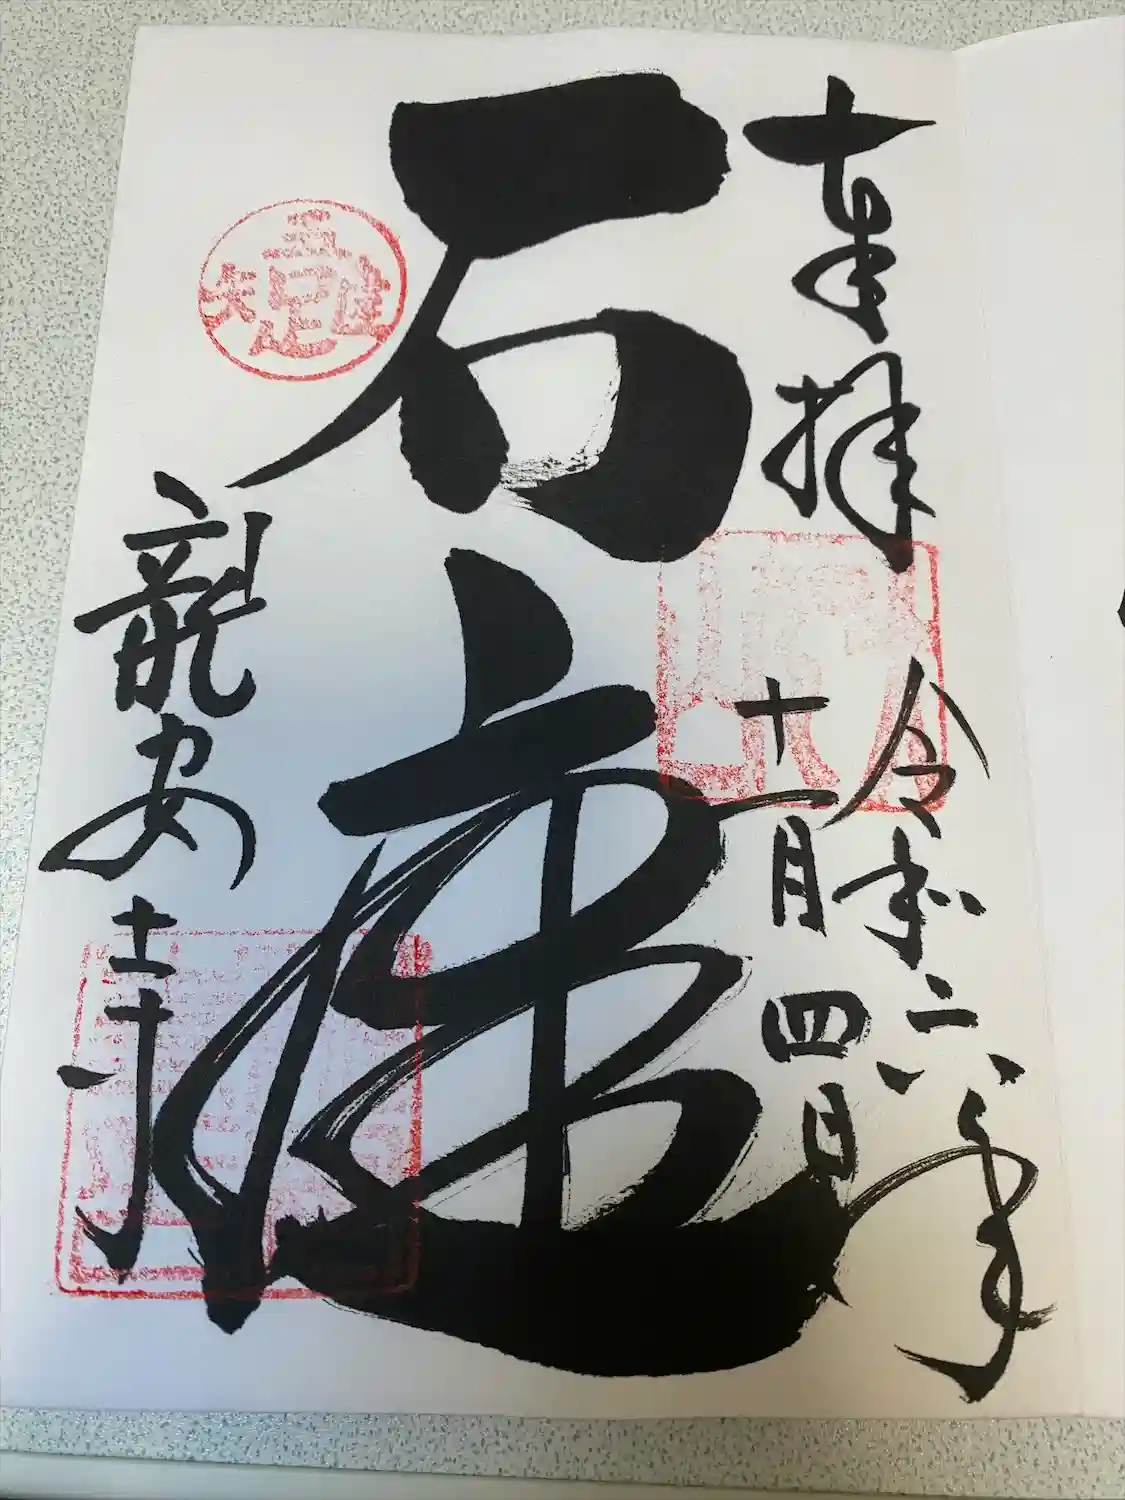 奉拝
令和六年
十一月四日
石庭
龍安寺
吾唯足知